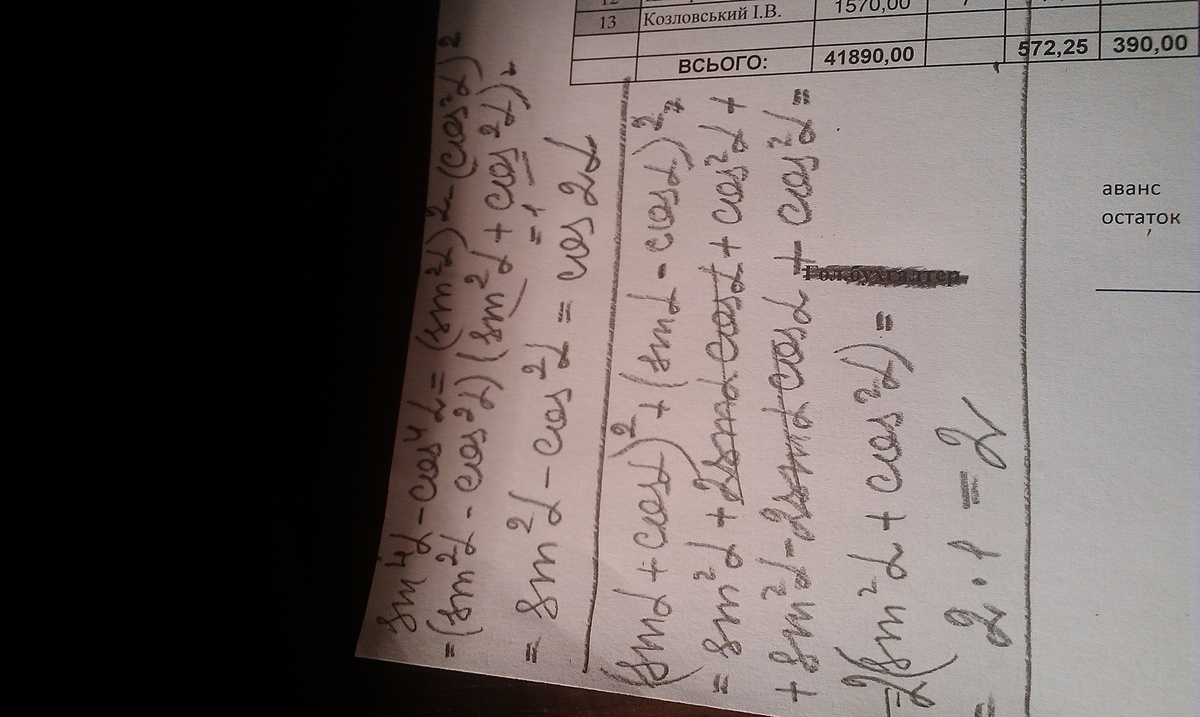 13 Козловський І.В. 1570,00
ВСЬОГО: 41890,00 572,25 390,00
аванс
остаток
Гол.бухгалтер
sin⁴α - cos⁴α = (sin²α)² - (cos²α)²
= (sin²α - cos²α)(sin²α + cos²α) =
= 1
= sin²α - cos²α = cos 2α
(sinα + cosα)² + (sinα - cosα)² =
= sin²α + 2sinα cosα + cos²α +
+ sin²α - 2sinα cosα + cos²α =
= 2(sin²α + cos²α) =
= 2 · 1 = 2